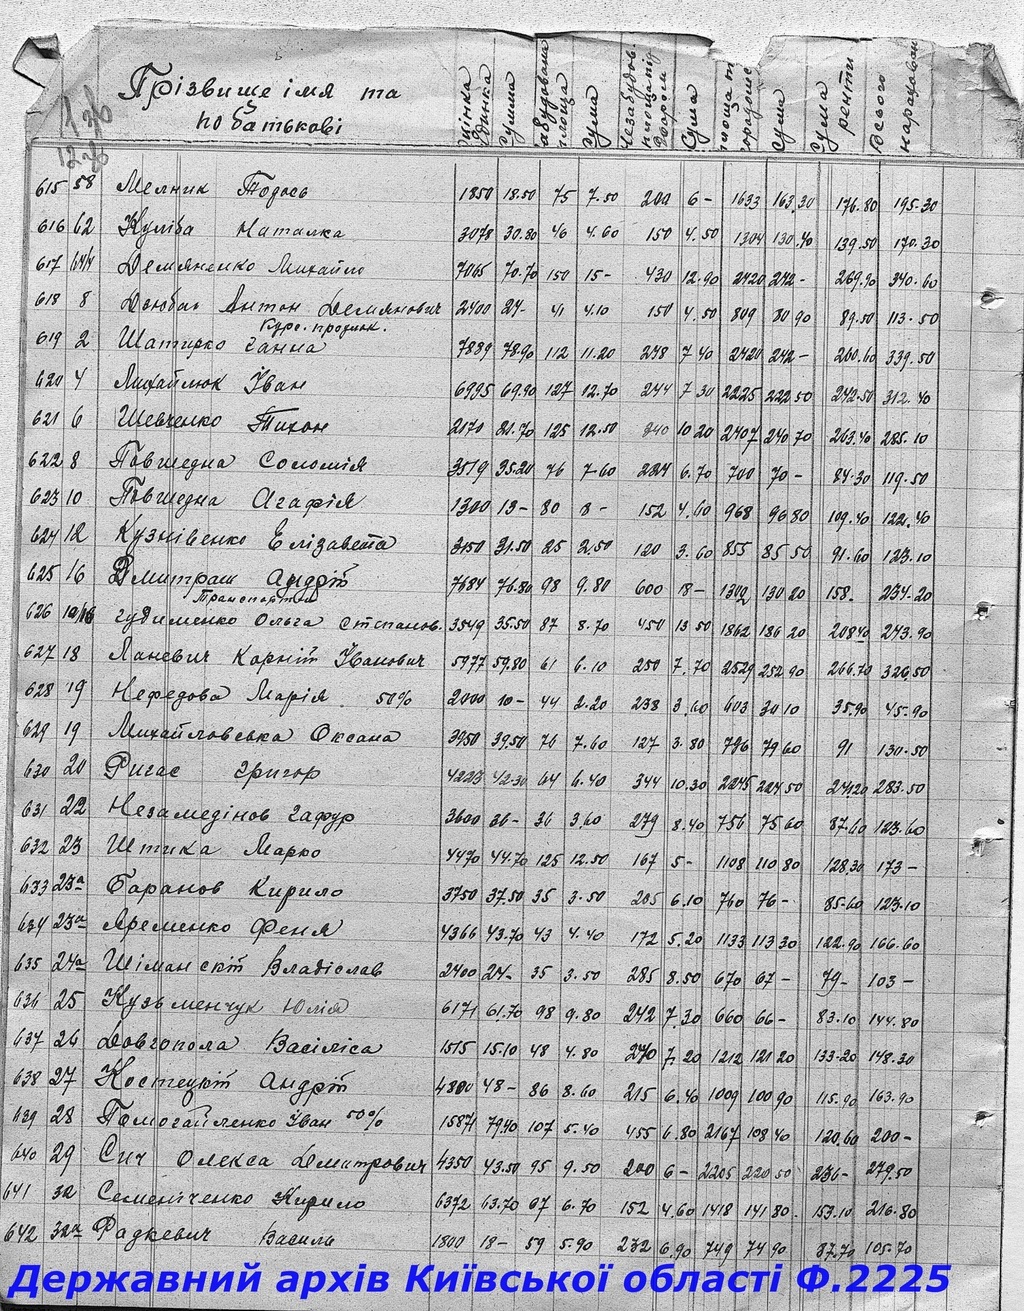 Прізвище імя та
по батькові
оцінка будинка сумма забудована площа сума Незабудов. площа під двором Сума площа сума сума ренти Всього нараховано
615 58 Мелник Тодось 1850 18.50 75 7.50 200 6- 1633 163.30 176.80 195.30
616 62 Куліба Наталка 3078 30.80 46 4.60 150 4.50 1304 130.40 139.50 170.30
617 64/4 Демяненко Михайло 7065 70.70 150 15- 430 12.90 2420 242- 269.90 340.60
618 8 Антон Демянович 2400 24- 41 4.10 150 4.50 809 80 90 89.50 113.50
619 2 Шатирко Ганна 7889 78.90 112 11.20 248 7 40 2420 242- 260.60 339.50
620 4 Михайлюк Іван 6995 69.90 127 12.70 244 7 30 2225 222 50 242.50 312.40
621 6 Шевченко Тихон 2170 21.70 125 12.50 340 10 20 2407 240 70 263.40 285.10
622 8 Повшедна Соломія 3519 35.20 76 7-60 224 6.70 700 70- 84.30 119.50
623 10 Повшедна Агафія 1300 13- 80 8- 152 4.60 968 96 80 109.40 122.40
624 12 Кузнівенко Елізавета 3150 31.50 25 2.50 120 3.60 855 85 50 91.60 123.10
625 16 Дмитраш Андрій 7684 76.80 98 9.80 600 18- 1302 130 20 158. 234.20
626 Гудименко Ольга Степанов. 3549 35.50 87 8.70 450 13 50 1862 186 20 208 40 243.90
627 18 Ланевич Корній Іванович 5977 59.80 61 6.10 250 7.70 2529 252 90 266.70 326.50
628 19 Нефедова Марія 50% 2000 10- 44 2.20 238 3.60 603 30 10 35.90 45.90
629 19 Михайловська Оксана 3950 39.50 76 7.60 127 3.80 796 79 60 91 130.50
630 20 Ригас Григор 4223 42.30 64 6.40 344 10.30 2245 224 50 241.20 283.50
631 22 Незамедінов Гафур 3600 36- 36 3.60 279 8.40 756 75 60 87.60 123.60
632 23 Штика Марко 4470 44.70 125 12.50 167 5- 1108 110 80 128.30 173-
633 23а Баранов Кирило 3750 37.50 35 3.50 205 6.10 760 76- 85.60 123.10
634 23а Яременко Феня 4366 43.70 43 4.40 172 5.20 1133 113 30 122.90 166.60
635 24а Шіманскій Владіслав 2400 24- 35 3.50 285 8.50 670 67- 79- 103-
636 25 Кузьменчук Юлія 6171 61.70 98 9.80 242 7.30 660 66- 83.10 144.80
637 26 Довгопола Васіліса 1515 15.10 48 4.80 240 7.20 1212 121 20 133.20 148.30
638 27 Костецкій Андрій 4800 48- 86 8.60 215 6.40 1009 100 90 115.90 163.90
639 28 Помогайленко Іван 50% 15871 79.40 107 5.40 455 6.80 2167 108 40 120.60 200-
640 29 Сич Олекса Дмитрович 4350 43.50 95 9.50 200 6- 2205 220 50 236- 279.50
641 32 Семеніченко Кирило 6372 63.70 67 6.70 152 4.60 1418 141 80. 153.10 216.80
642 32а Радкевич Василь 1800 18- 59 5.90 232 6.90 749 74 90 87.70 105.70
Державний архів Київської області Ф.2225